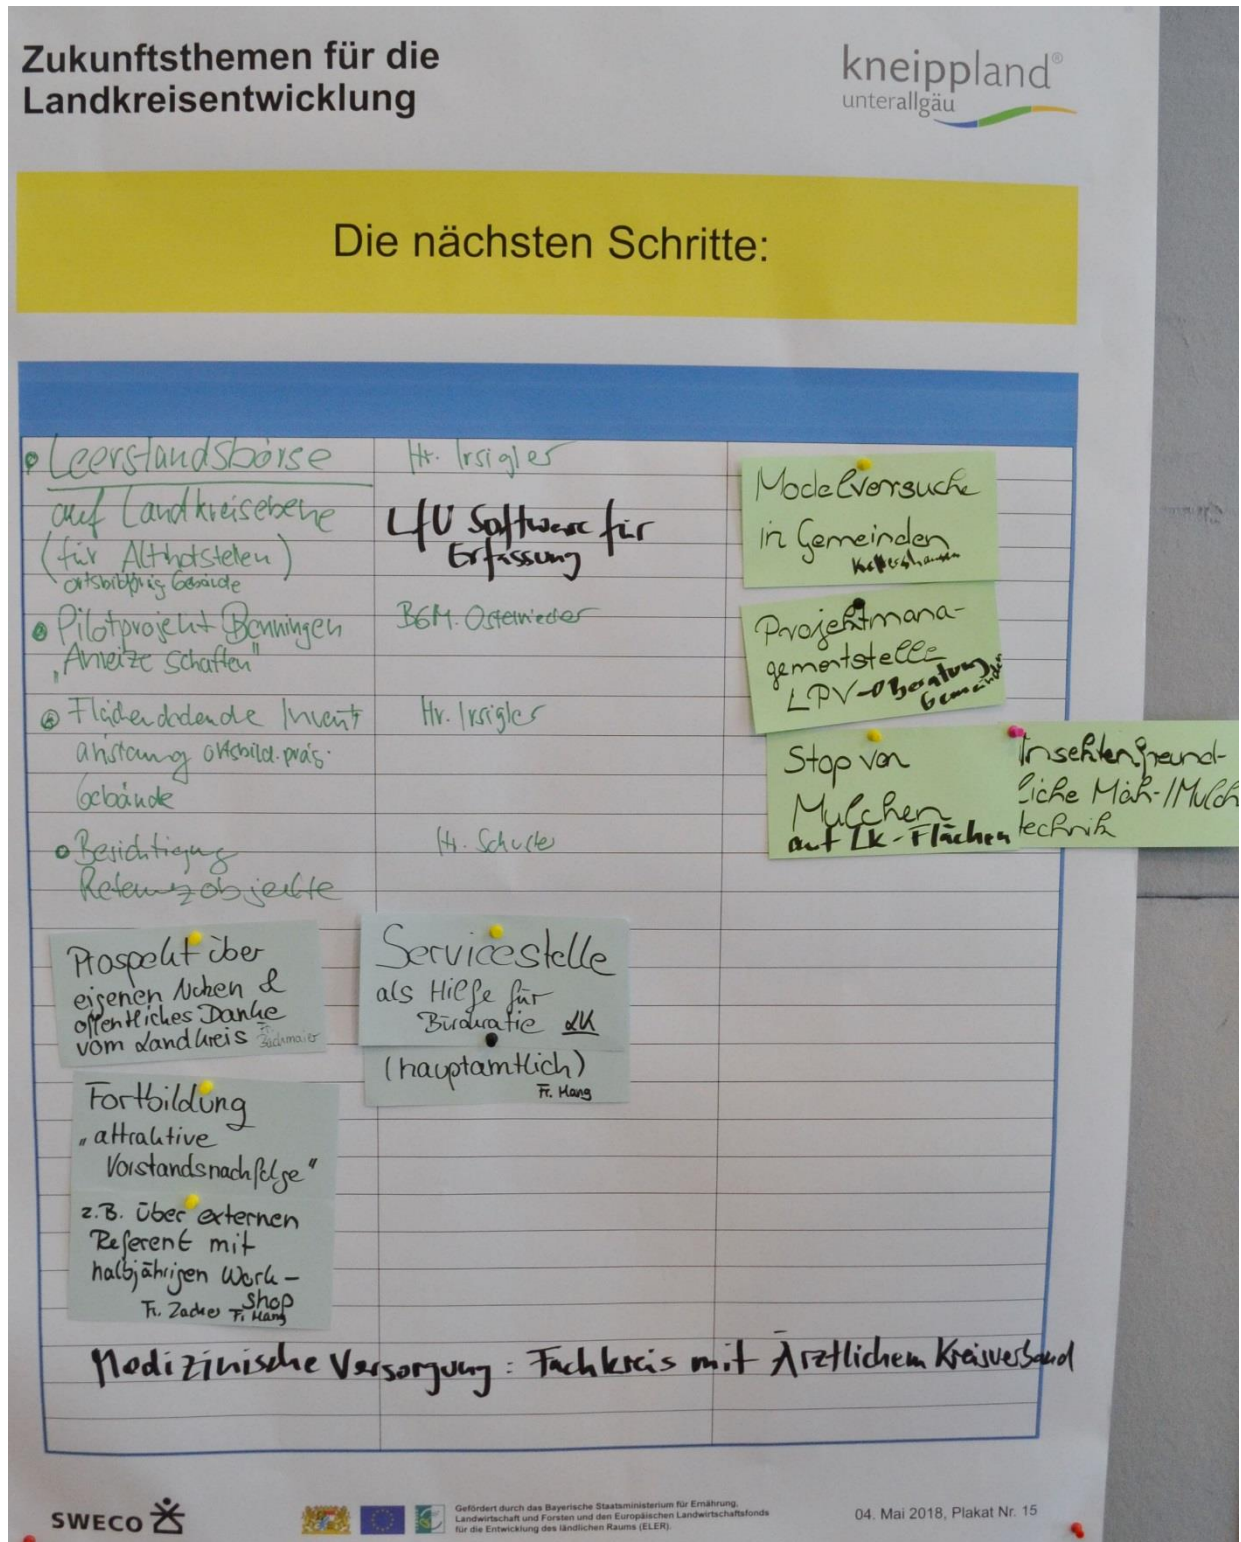 Zukunftsthemen für die
Landkreisentwicklung
kneippland®
unterallgäu
Die nächsten Schritte:
Leerstandsbörse
auf Landkreisebene
(für Althofstellen)
Gebäude
Hr. Irsigler
LfU Software für
Erfassung
Pilotprojekt Benningen
"Anreize schaffen"
BGM. Osterrieder
Flächendeckende
ortsbild.präg.
Gebäude
Hr. Irsigler
Besichtigung
Referenzobjekte
Hr. Schuster
Modellversuche
in Gemeinden
Projektmana-
gementstelle
LPV → Beratung
Gemeinde
Stop von
Mulchen
auf LK-Flächen
Insektenfreund-
liche Mäh-/Mulch
technik
Prospekt über
eigenen Nutzen &
öffentliches Danke
vom Landkreis Fr.
Servicestelle
als Hilfe für
Bürokratie LK
(hauptamtlich)
Fr. Hang
Fortbildung
"attraktive
Vorstandsnachfolge"
z.B. über externen
Referent mit
halbjährigen Work-
shop
Fr. Zacher Fr. Hang
Medizinische Versorgung: Fachkreis mit Ärztlichem Kreisverband
SWECO
Gefördert durch das Bayerische Staatsministerium für Ernährung,
Landwirtschaft und Forsten und den Europäischen Landwirtschaftsfonds
für die Entwicklung des ländlichen Raums (ELER).
04. Mai 2018, Plakat Nr. 15